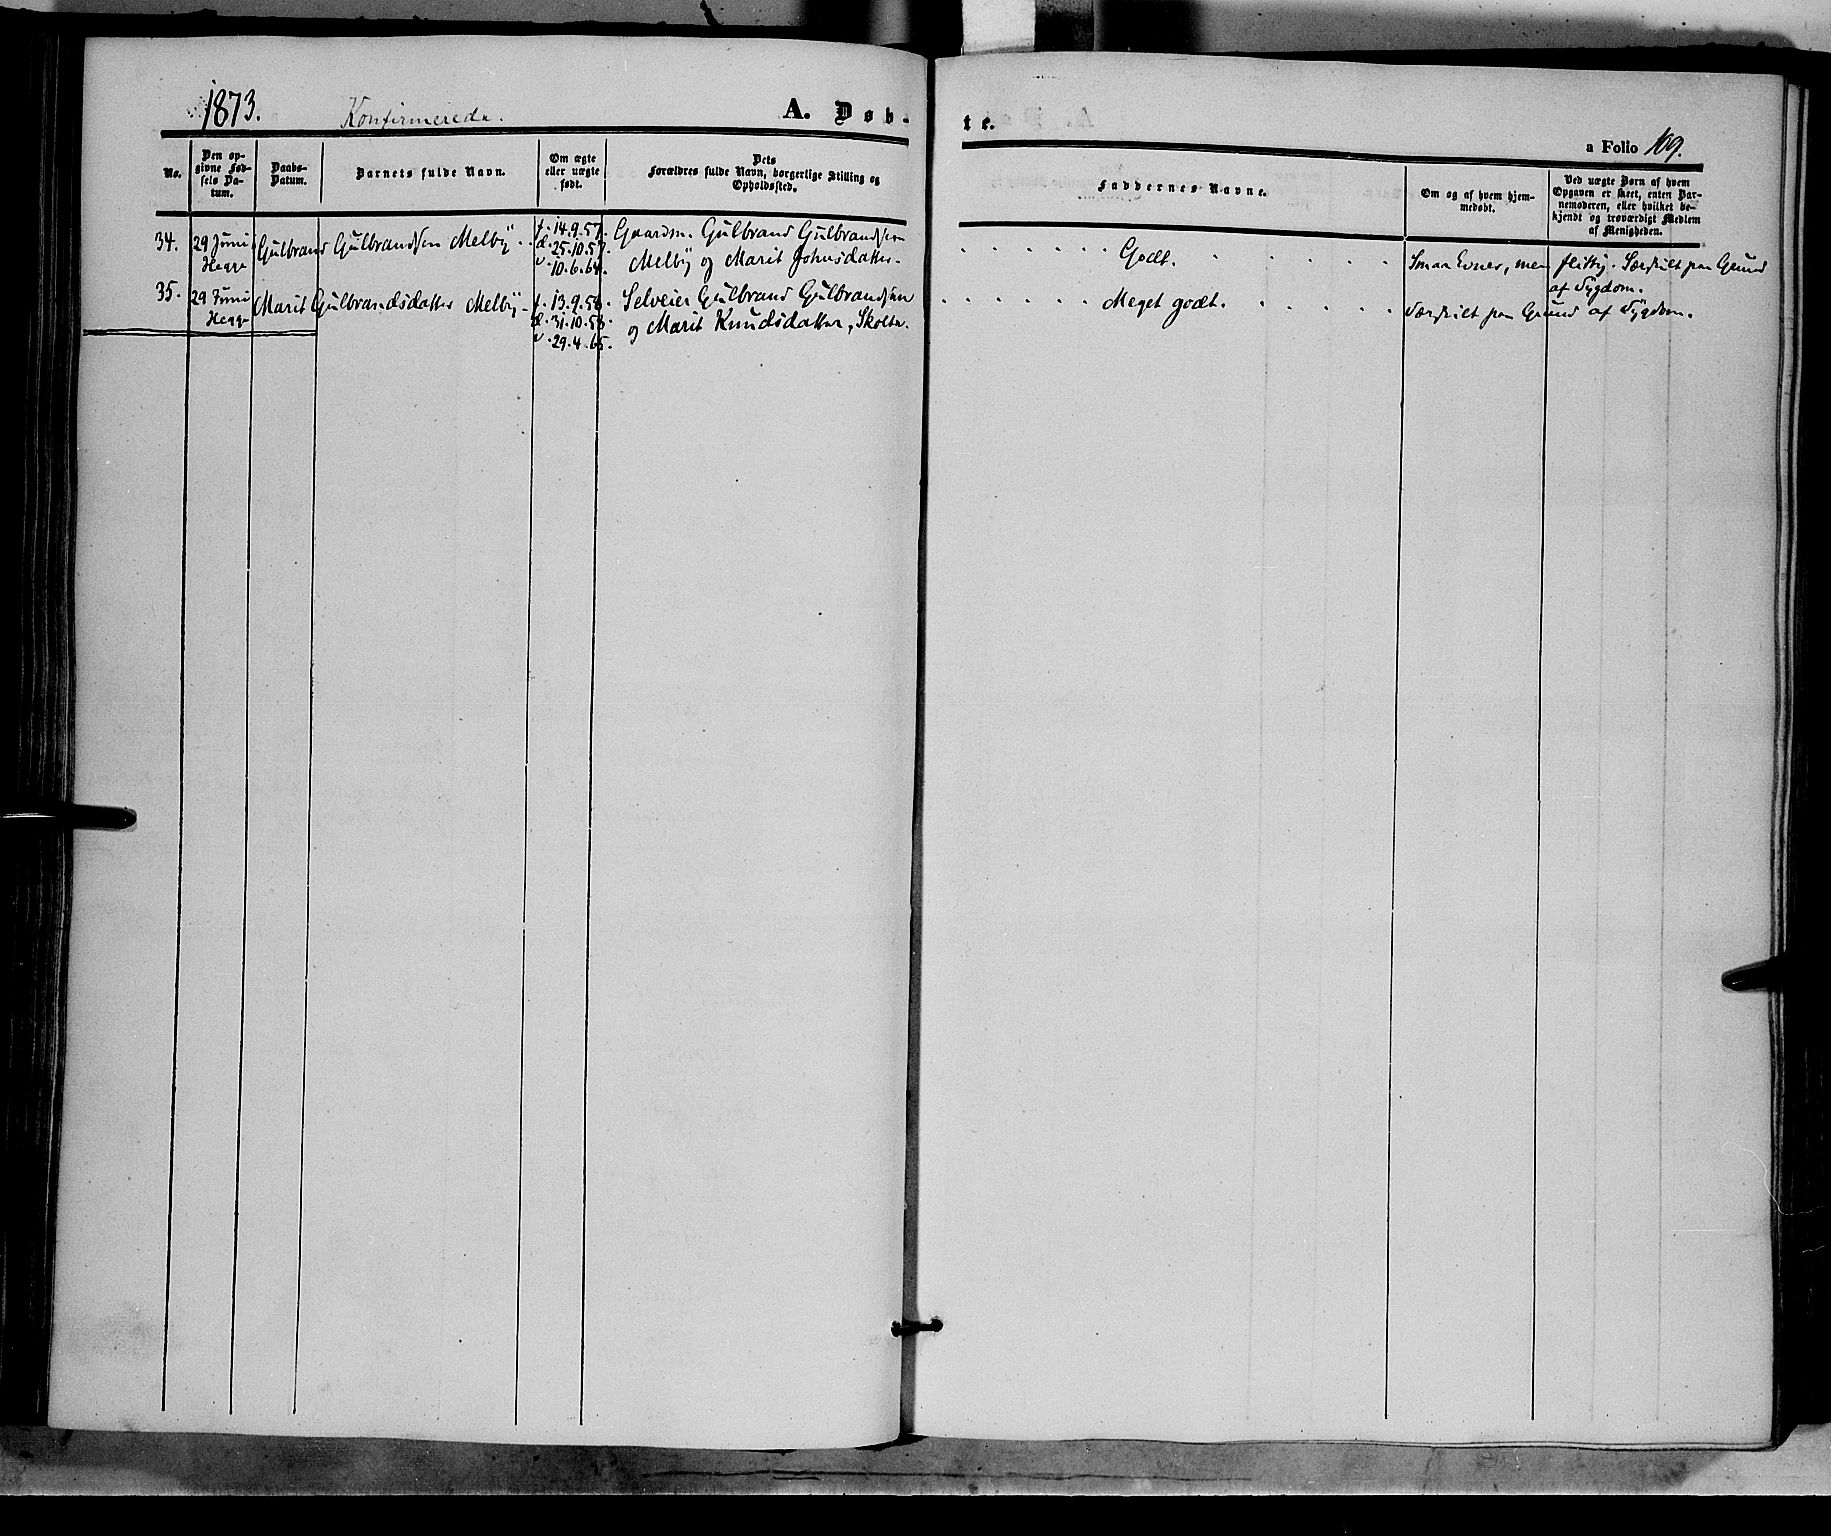 1873. Konfirmerede. A. Døb-
te.
a Folio 109.
No.
Den op-
givne Fød-
sels Da-
tum.
Daabs-
Datum.
Barnets fulde Navn.
Om ægte
eller uægte
født.
Dets
Forældres fulde Navn, borgerlige Stilling og
Opholdssted.
Faddernes Navne.
Om og af hvem hjem-
medøbt.
Ved uægte Børn af hvem
Opgaven er skeet, enten Bar-
nemoderen, eller hvilket be-
kjendt og troværdigt Medlem
af Menigheden.
34. 29 Juni Gulbrand Gulbrandsen Melby f. 14.9.57. Gaardm. Gulbrand Gulbrandsen
Hegge d. 25.10.57. Melby og Marit Johnsdatter.
v. 10.6.64.
Godt. Smaa Evner, men flittig. Særskilt paa Grund
af Sygdom.
35. 29 Juni Marit Gulbrandsdatter Melby f. 13.9.58. Selveier Gulbrand Gulbrandsen
Hegge d. 31.10.58. og Marit Knudsdatter,
v. 29.4.65.
Meget godt. Særskilt paa Grund af Sygdom.